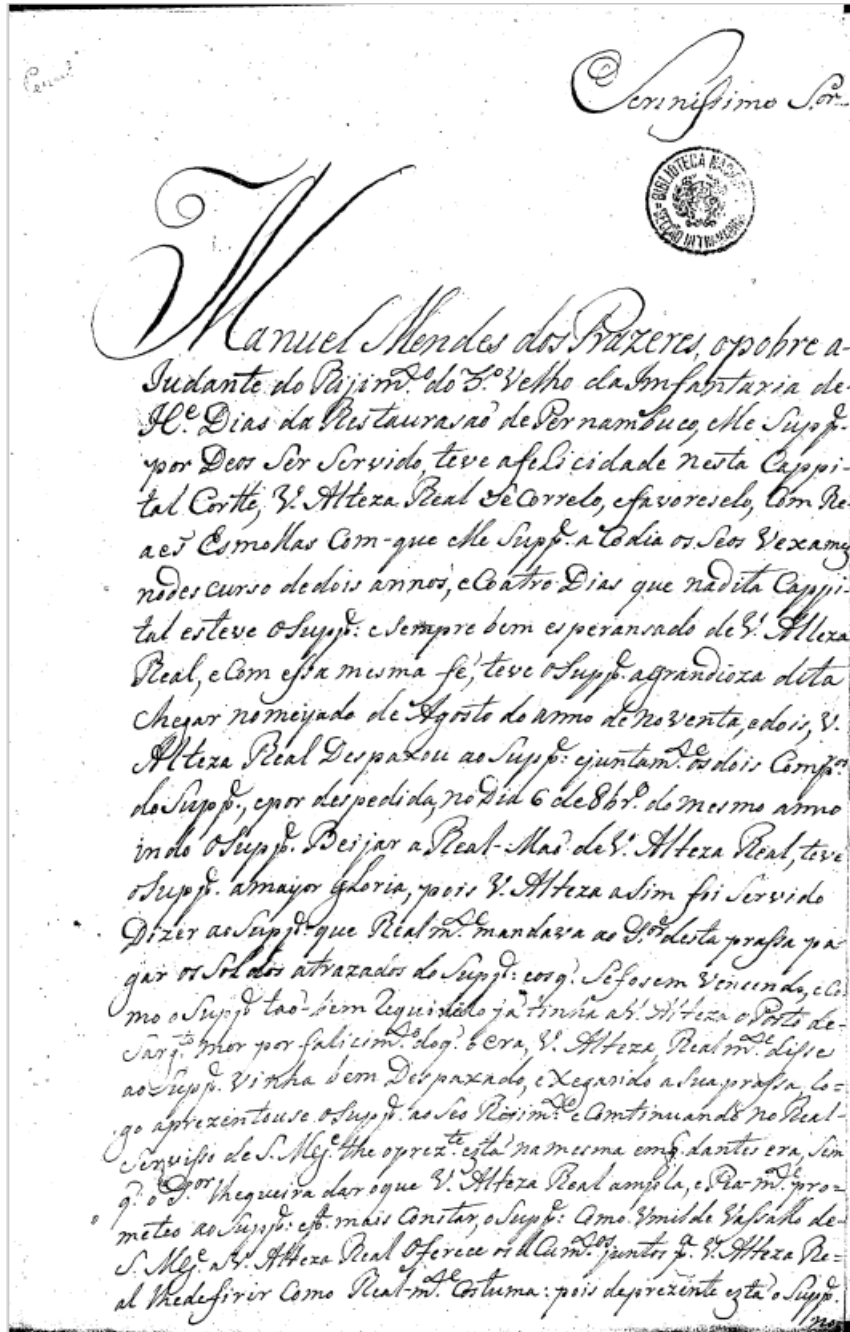 Serenissimo S.or
BIBLIOTECA NACIO
Manuel Mendes dos Prazeres, o pobre a-
Judante do Rijim.to do 3.o Velho da Imfantaria de-
H.e Dias da Restaurasaõ de Pernambuco, elle Supp.e
por Deos Ser Servido, teve a felicidade nesta Cappi-
tal Cortte, V. Alteza Real Sècorrelo, e favoreselo, Com Re-
aes Esmollas Com-que elle Supp.e a Codia os Seos Vexames
no des curso de dois annos, e Coatro Dias que na dita Cappi-
tal esteve o Supp.e: e Sempre bem esperansado de V. Alteza
Real, e Com essa mesma fé, teve o Supp.e a grandioza dita
Chegar no meyado de Agosto do anno de noventa, e dois, V.
Alteza Real Despaxou ao Supp.e: e juntam.te os dois Comp.ros
do Supp.e, e por despedida, no Dia 6 de 8br.o do mesmo anno
indo o Supp.e Beijar a Real-Maõ de V. Alteza Real, teve
o Supp.e a mayor gloria, pois V. Alteza asim foi Servido
Dizer ao Supp.e que Realm.te mandava ao G.or desta prassa pa-
gar os Soldos atrazados do Supp.e: e os q. Se fosem Vencendo, e Co-
mo o Supp.e taõ-bem Requirido já tinha a V. Alteza o Posto de-
Sarg.to mor por falicim.to do q. o era, V. Alteza, Realm.te disse
ao Supp.e Vinha bem Despaxado, e Xegando a Sua prassa, lo-
go aprezentouse o Supp.e ao Seo Rejim.to e Comtinuando no Real-
Servisso de S. Mg.e the o prez.te está na mesma em q. dantes era, Sem
q. o G.or lhe queira dar o que V. Alteza Real ampla, e Pia-m.te pro-
meteo ao Supp.e: e p.a mais Constar, o Supp.e: Como Umilde Vassallo de-
S. Mg.e a V. Alteza Real Oferece os dCum.tos juntos p.a V. Alteza Re-
al lhe defirir Como Real-m.te Costuma: pois de prezente está o Supp.e
no